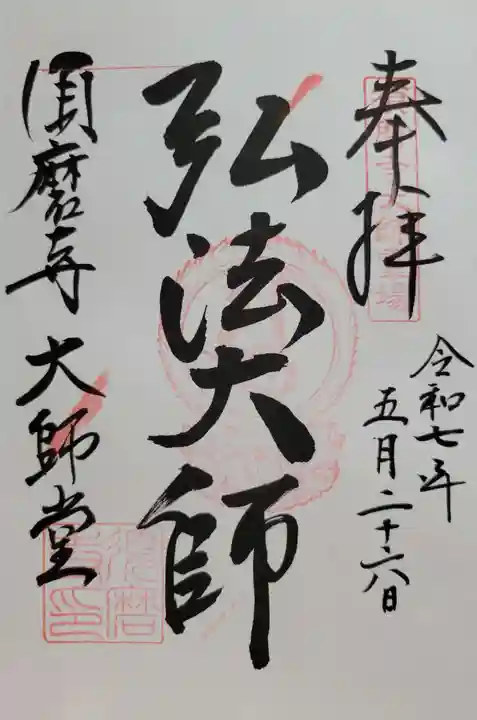 奉拝
令和七年
五月二十六日
弘法大師
須磨寺 大師堂
須磨寺印